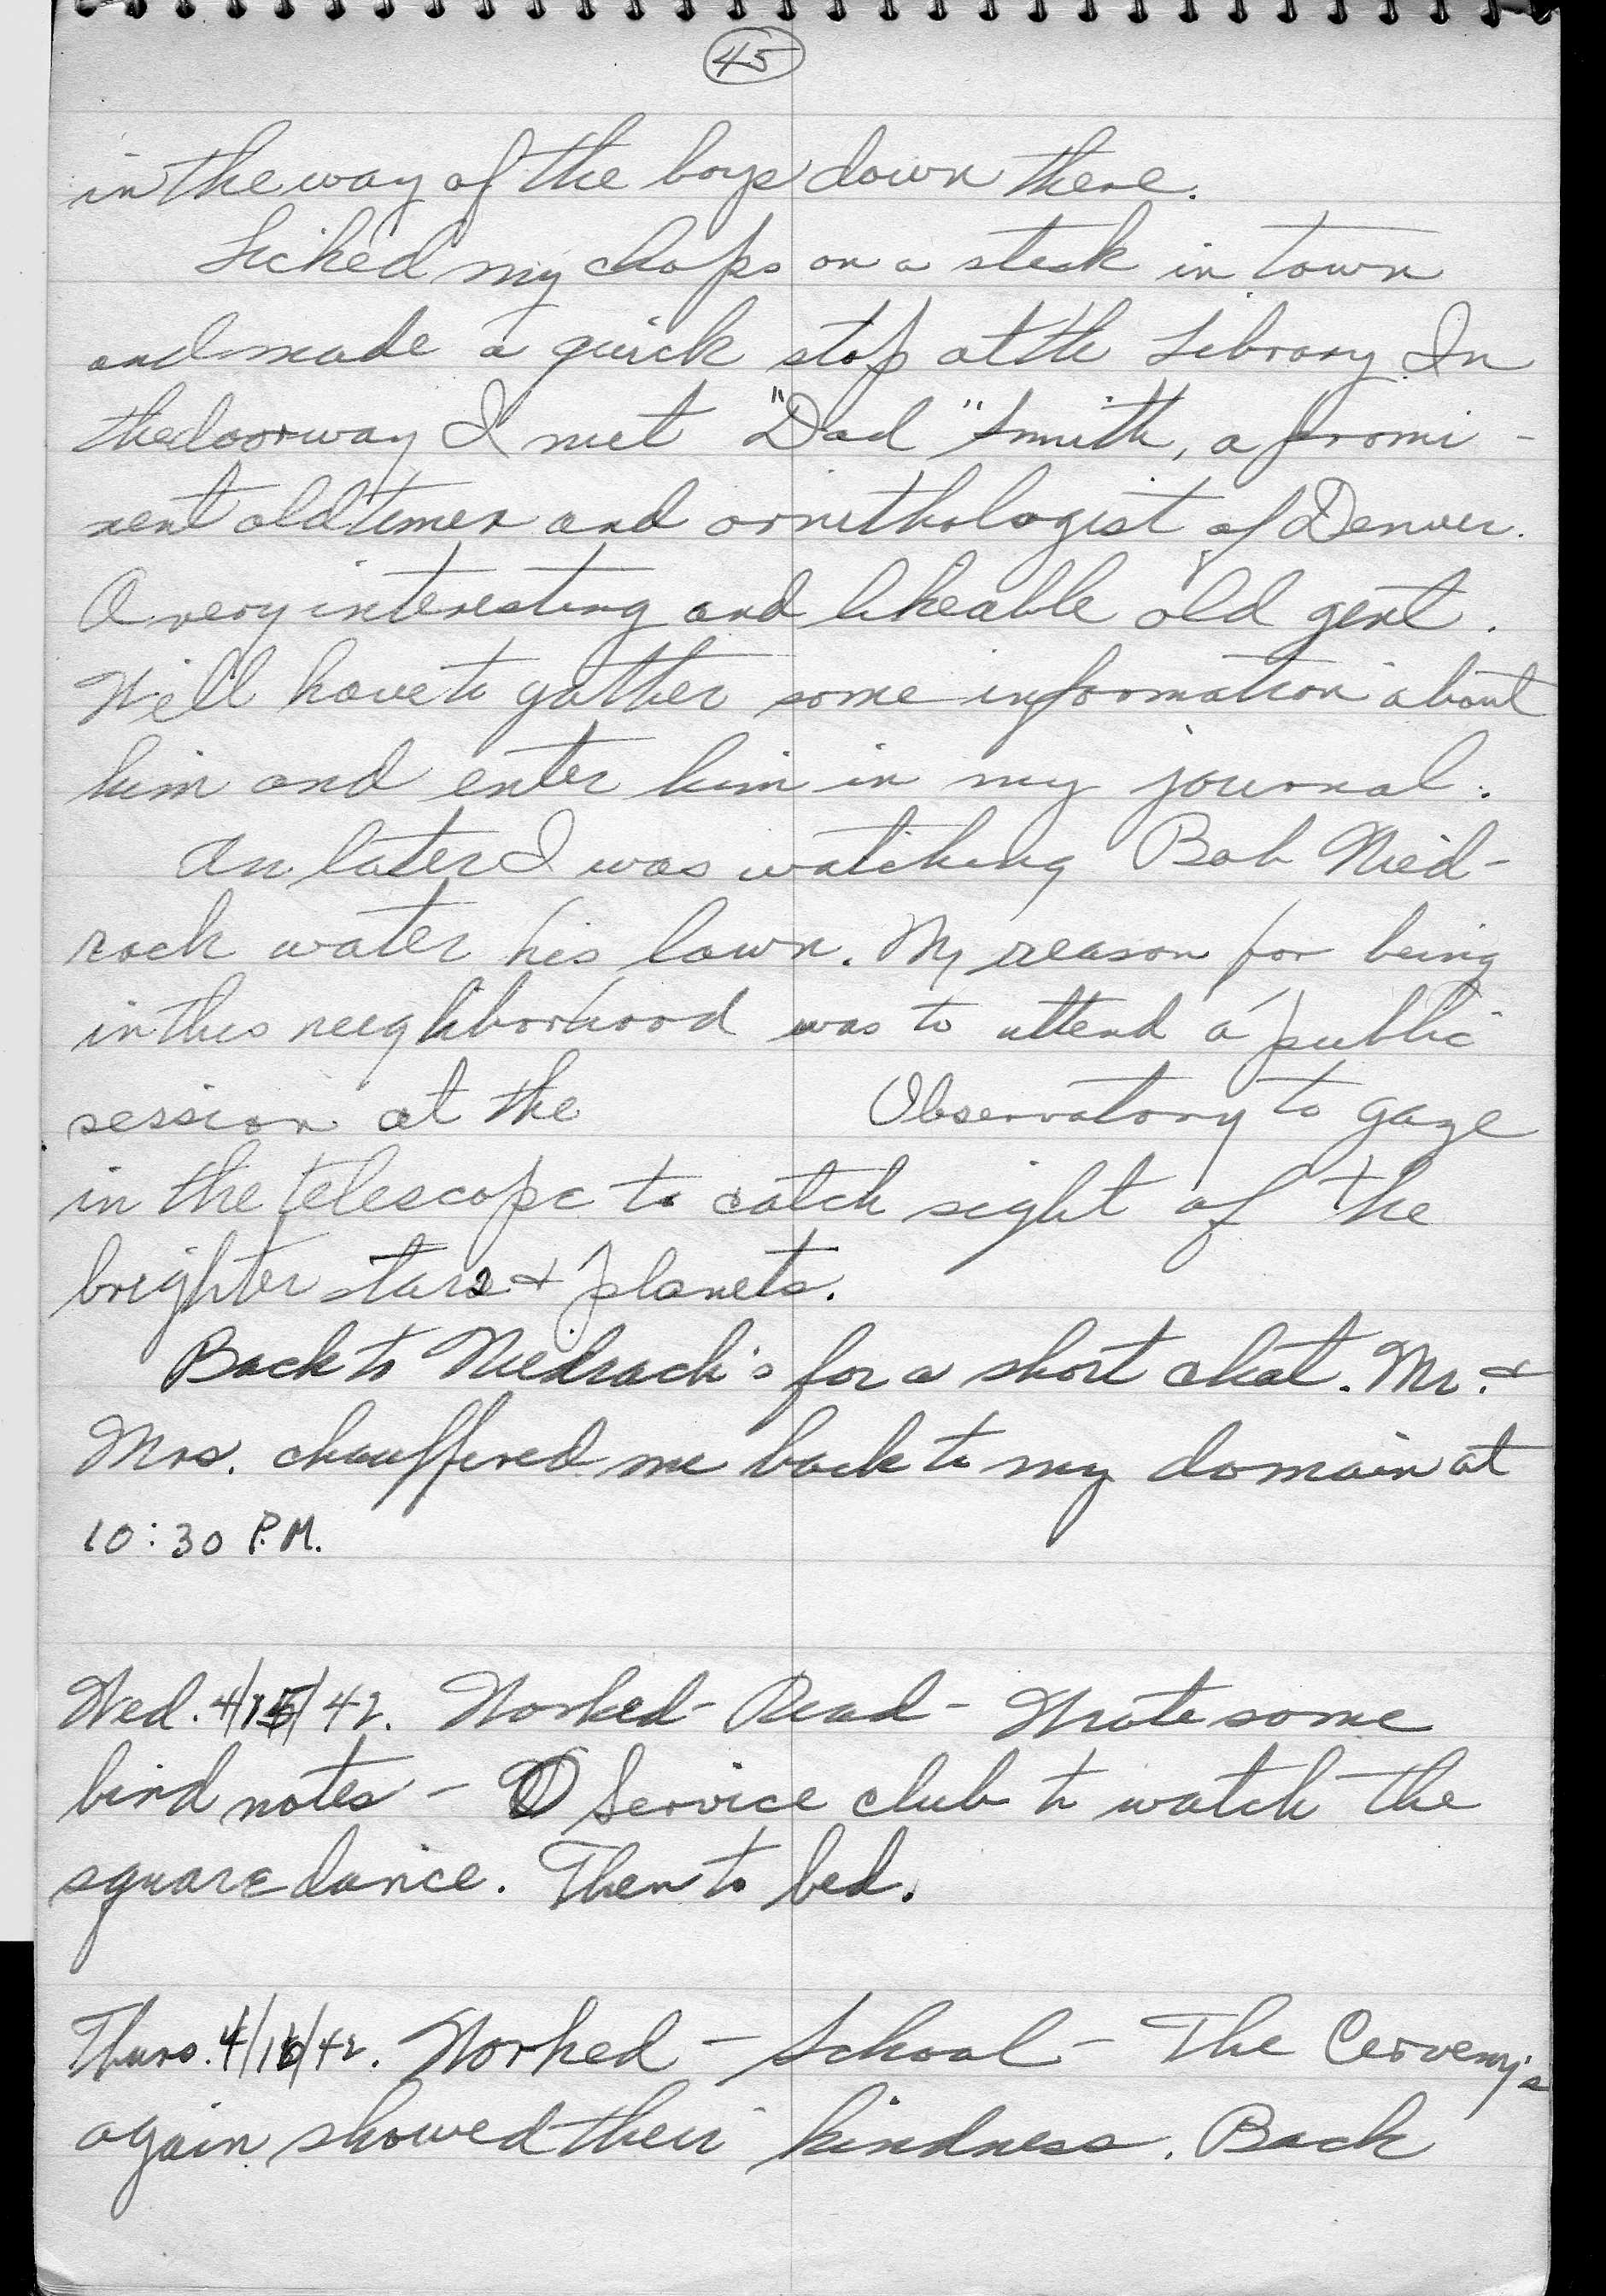 45
in the way of the boys down there.
Licked my chops on a steak in town
and made a quick stop at th Library. In
the doorway I met "Dad" Smith, a promi-
nent oldtimer and ornithologist of Denver.
A very interesting and likeable old gent.
Will have to gather some information about
him and enter him in my journal.
An later I was watching Bob Nied-
rack water his lawn. My reason for being
in this neighborhood was to attend a public
session at the Observatory to gaze
in the telescope to catch sight of the
brighter stars + planets.
Back to Niedrach's for a short chat. Mr. +
Mrs. chauffered me back to my domain at
10:30 P.M.
Wed. 4/15/42. Worked - Read - Wrote some
bird notes - Service club to watch the
square dance. Then to bed.
Thurs. 4/16/42. Worked - School - The Cerveny's
again showed their kindness. Back